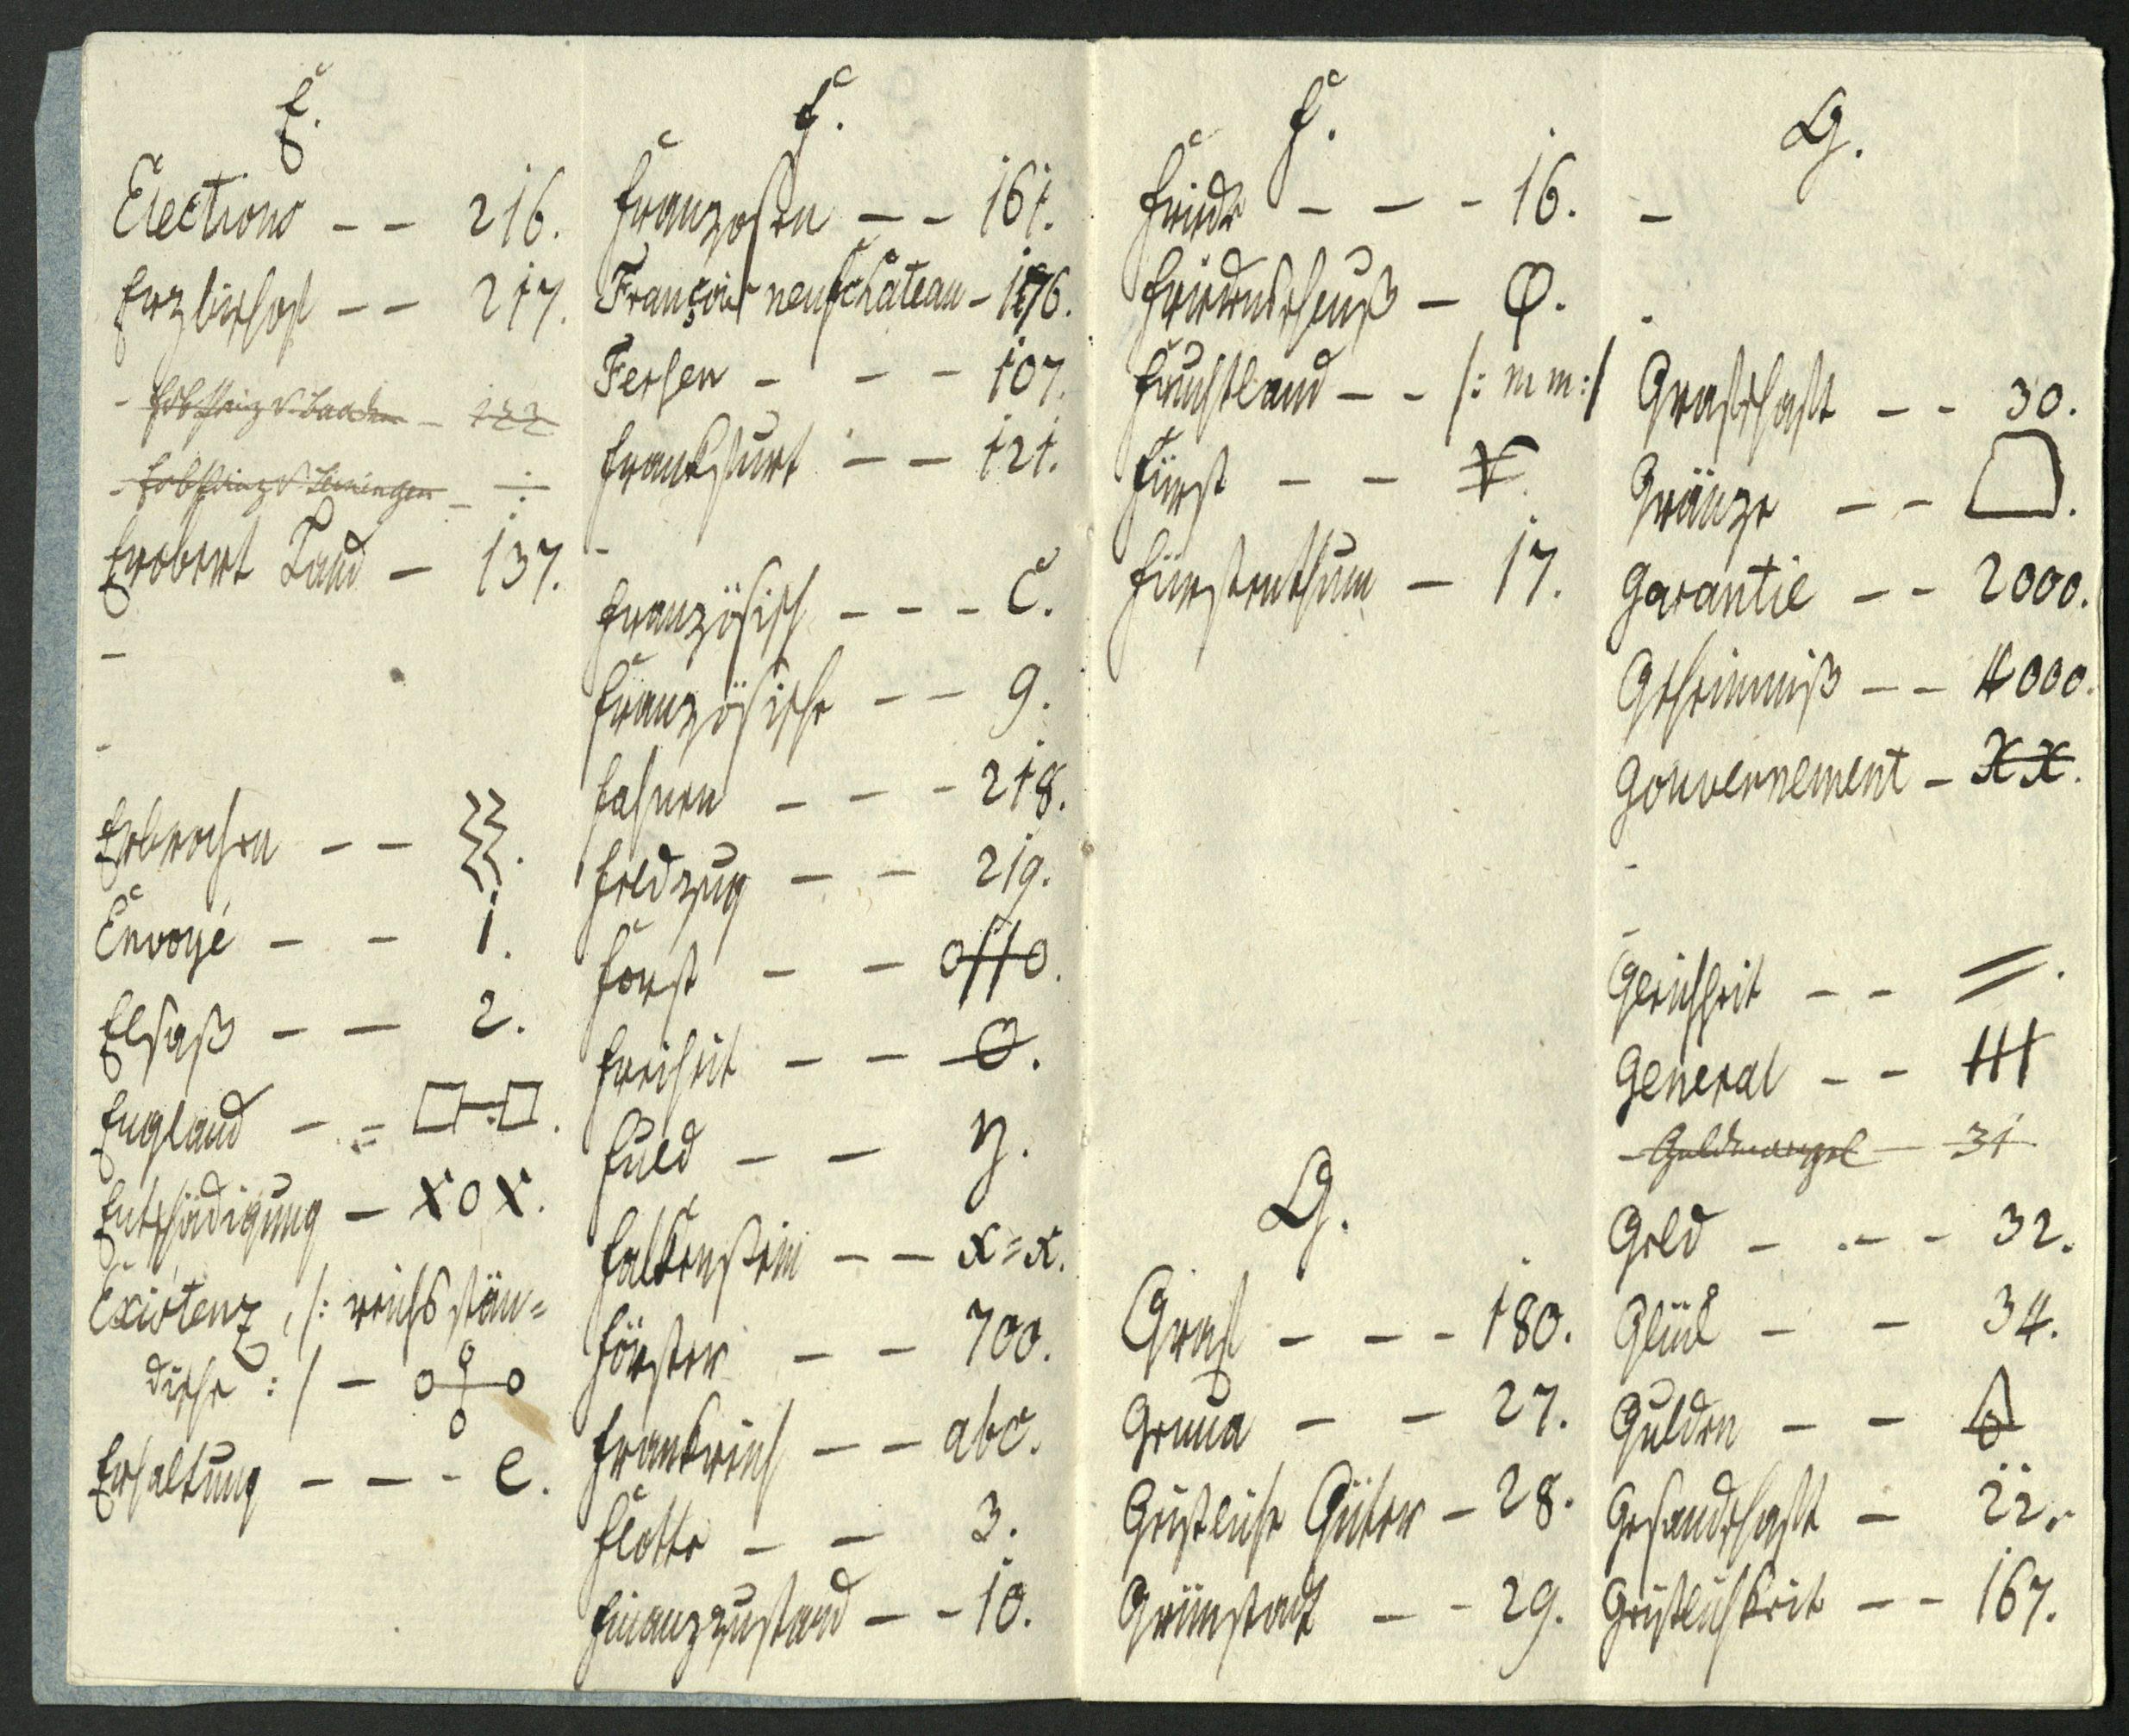 E.
Elections -- 216.
Erzbischof -- 217.
- Erbprinz v. Baaden - 122
- Erbprinz v Leiningen -
Erobert Land - 137.
-
-
Erbrochen --
Envoyé -- 1.
Elsaß -- 2.
England --
Entschädigung - xox.
Existenz, /: reichsstän=
dische :/ -
Erhaltung --- e.
F.
Franzosen -- 161.
François neufchâteau - 176.
Fersen --- 107.
Frankfurt -- 121.
-
Französisch --- C.
Französische -- 9.
Fahnen --- 218.
Feldzug -- 219.
Forst --
Freiheit --
Fuld -- y.
Falkenstein -- x=x.
Förster -- 700.
Frankreich -- abc.
Flotte -- 3.
Finanzzustand -- 10.
F.
Friede --- 16.
Friedensschluß -
Fruchtland -- /: m m :/
Fürst --
Fürstenthum - 17.
G.
Graf --- 180.
Genua -- 27.
Geistliche Güter - 28.
Grünstadt -- 29.
G.
-
Grafschaft -- 30.
Gränze --
Garantie -- 2000.
Geheimniß -- 4000.
Gouvernement - XX.
-
-
Gleichheit -- =.
General --
- Geldmangel - 31
Geld --- 32.
Glück -- 34.
Gulden --
Gesandschaft - 22.
Geistlichkeit -- 167.